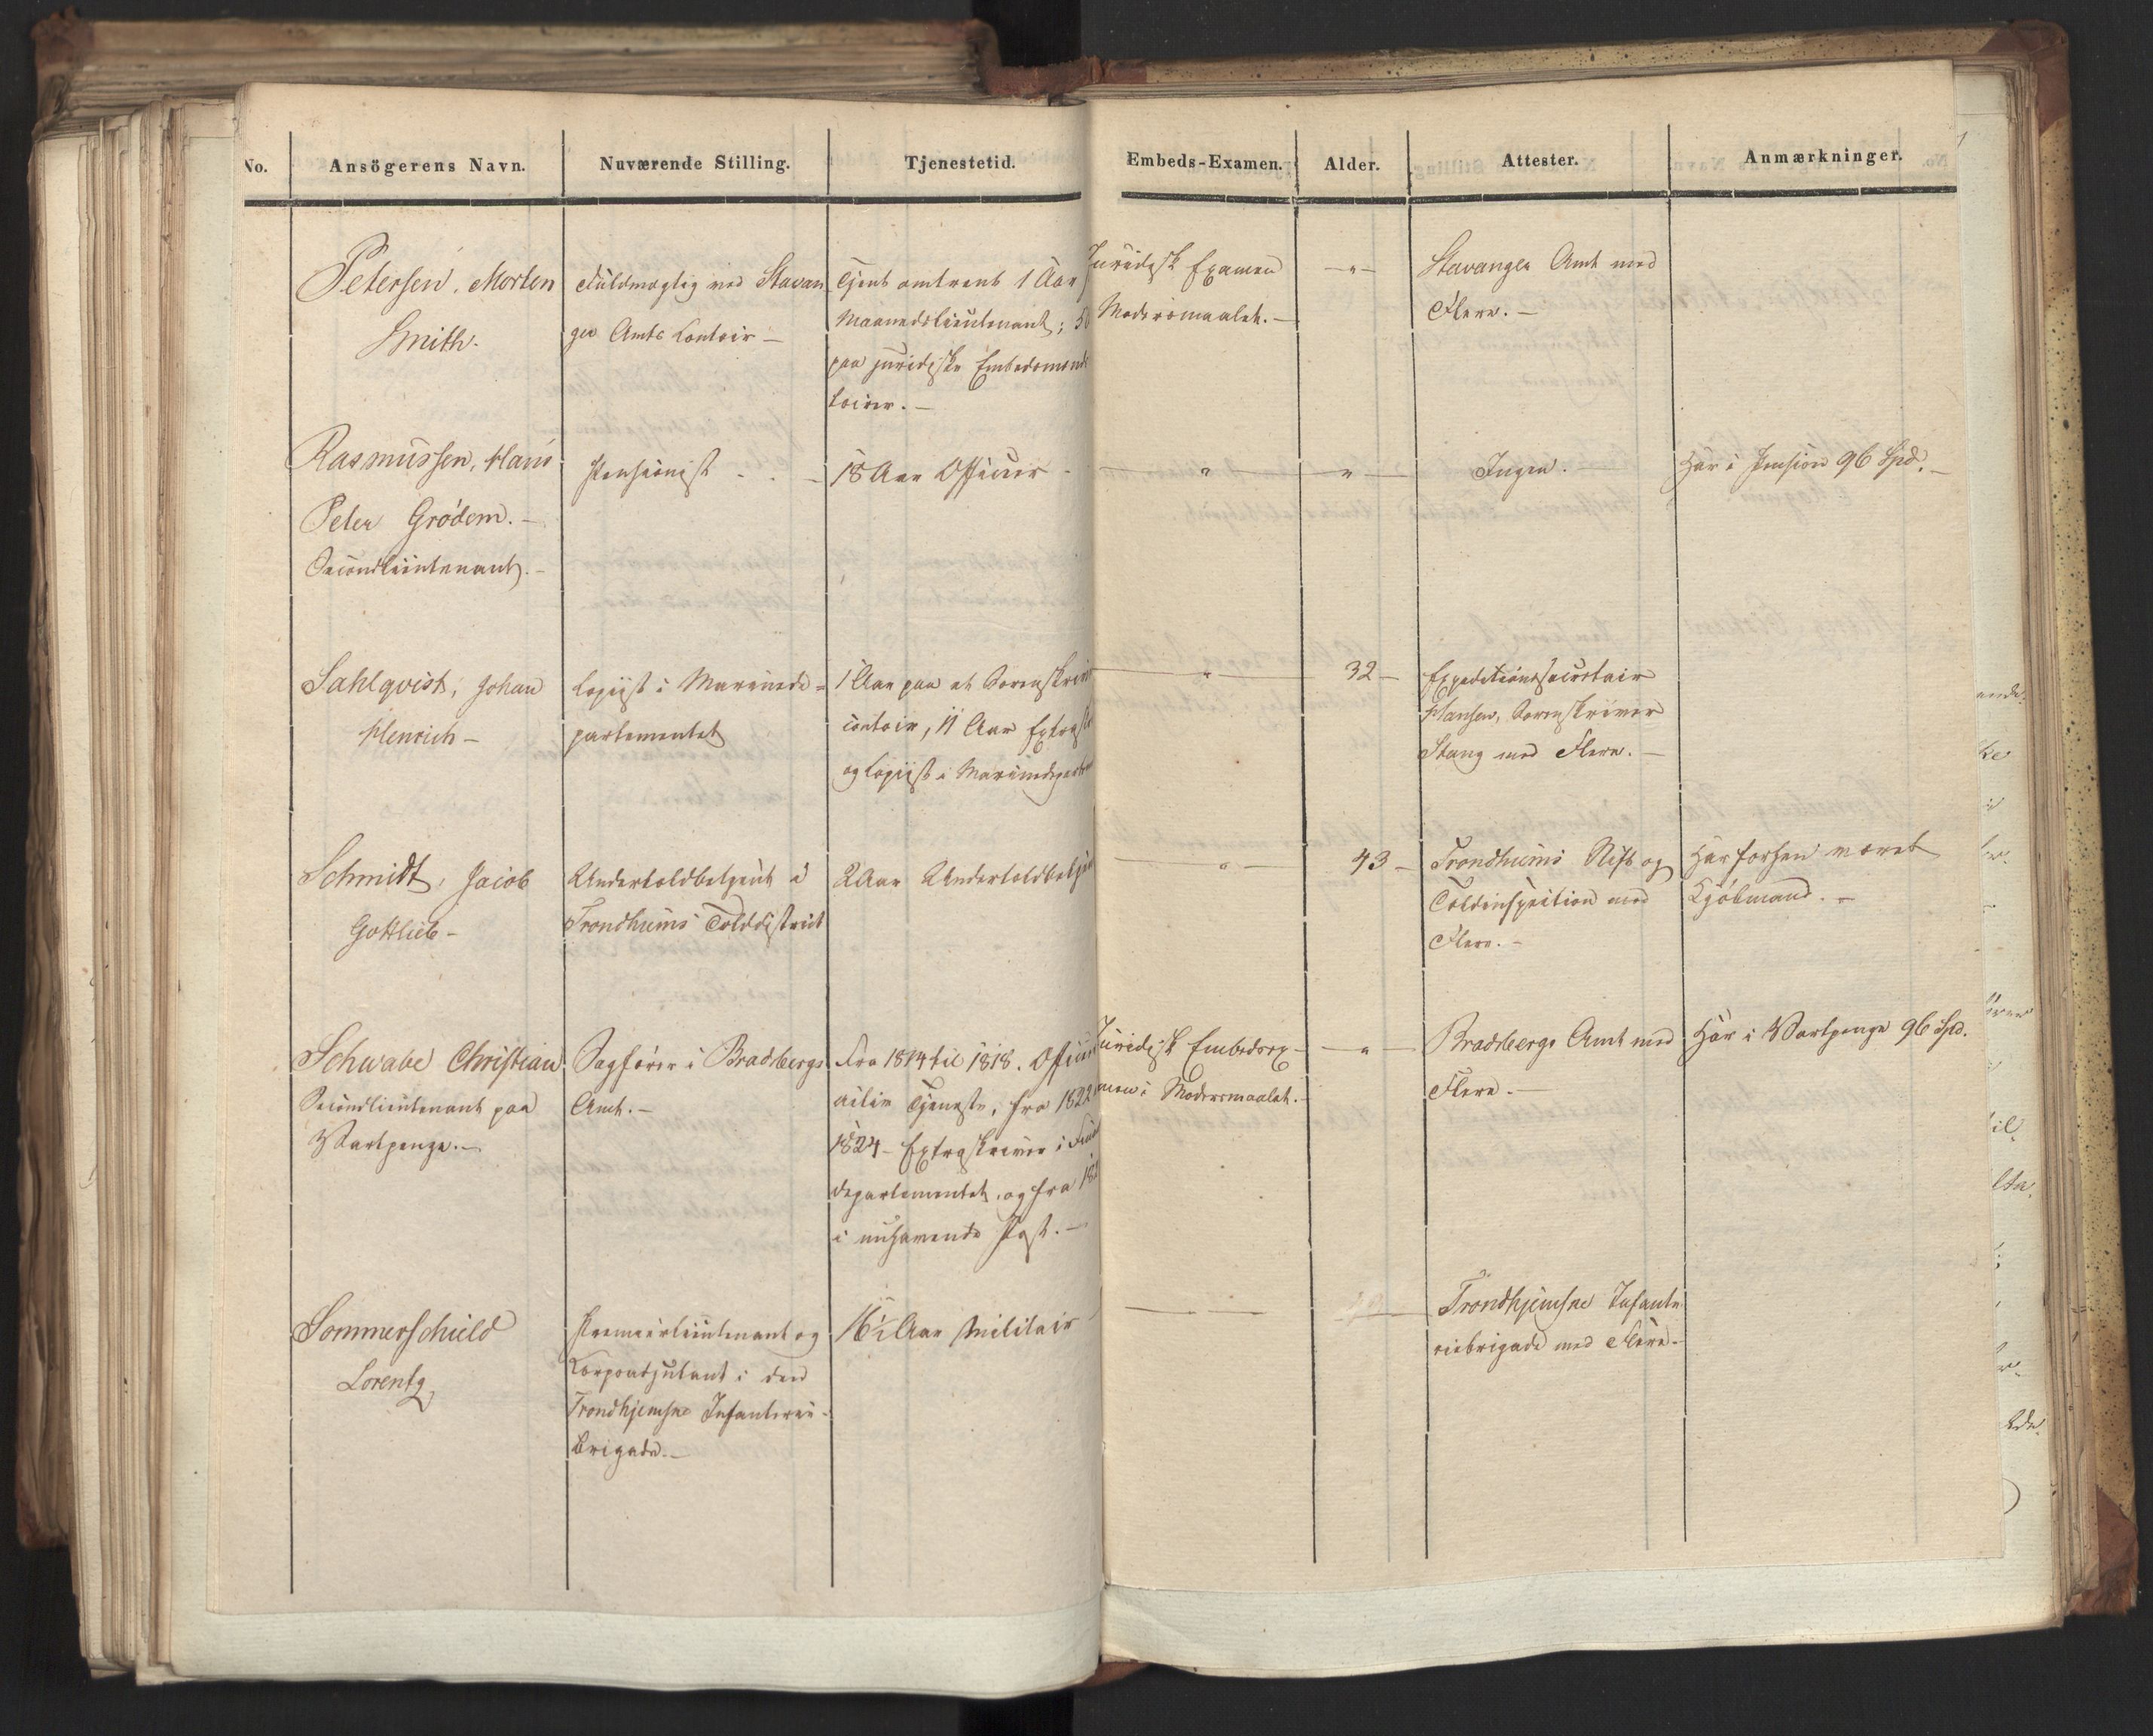 No. Ansögerens Navn. Nuværende Stilling. Tjenestetid. Embeds-Examen. Alder. Attester. Anmærkninger.
Petersen, Morten
Smith.
Fuldmægtig ved Stavan
ger Amts Contoir —
Tjent omtrent 1 Aar
Maanedslieutenant; 5
paa juridiske Embedsmænds
toirer. —
Juridisk Examen
Modersmaalet. —
— " —
Stavanger Amt med
Flere. —
Rasmussen, Hans
Peter Grödem. —
Secondlieutenant. —
Pensionist - - -
18 Aar Officier -
— " —
— " —
Ingen. —
Har i Pension 96 Spd. —
Sahlqvist, Johan
Henrich —
Copiist i Marinede=
partementet
1 Aar paa et Sorenskriver
contoir, 11 Aar
og Copiist i Marinedepartem
— " —
32 —
Expeditionssecretair
Hansen, Sorenskriver
Stang med Flere. —
Schmidt, Jacob
Gottlieb —
Undertoldbetjent i
Trondhiems Tolddistrict
2 Aar Undertoldbetje
— " —
43 —
Trondhiems Stift og
Toldinspection med
Flere. —
Har forhen været
Kjöbmand. —
Schwabe Christian
Secondlieutenant paa
Vartpenge. —
Sagförer i Bradsbergs
Amt. —
Fra 1814 til 1818. Offici
Tjeneste, fra 1822
1824 - Extraskriver i
departementet, og fra 18
i nuhavende Post. —
Juridisk Embedsex-
amen i Modersmaalet. -
— " —
Bradsbergs Amt med
Flere —
Har i Vartpenge 96 Spd.
Sommerschield
Lorentz,
Premierlieutenant og
Corpsadjutant i den
Trondhjemske Infanterie-
brigade. —
16½ Aar Militair -
— " —
Trondhjemske Infante
riebrigade med Flere. -